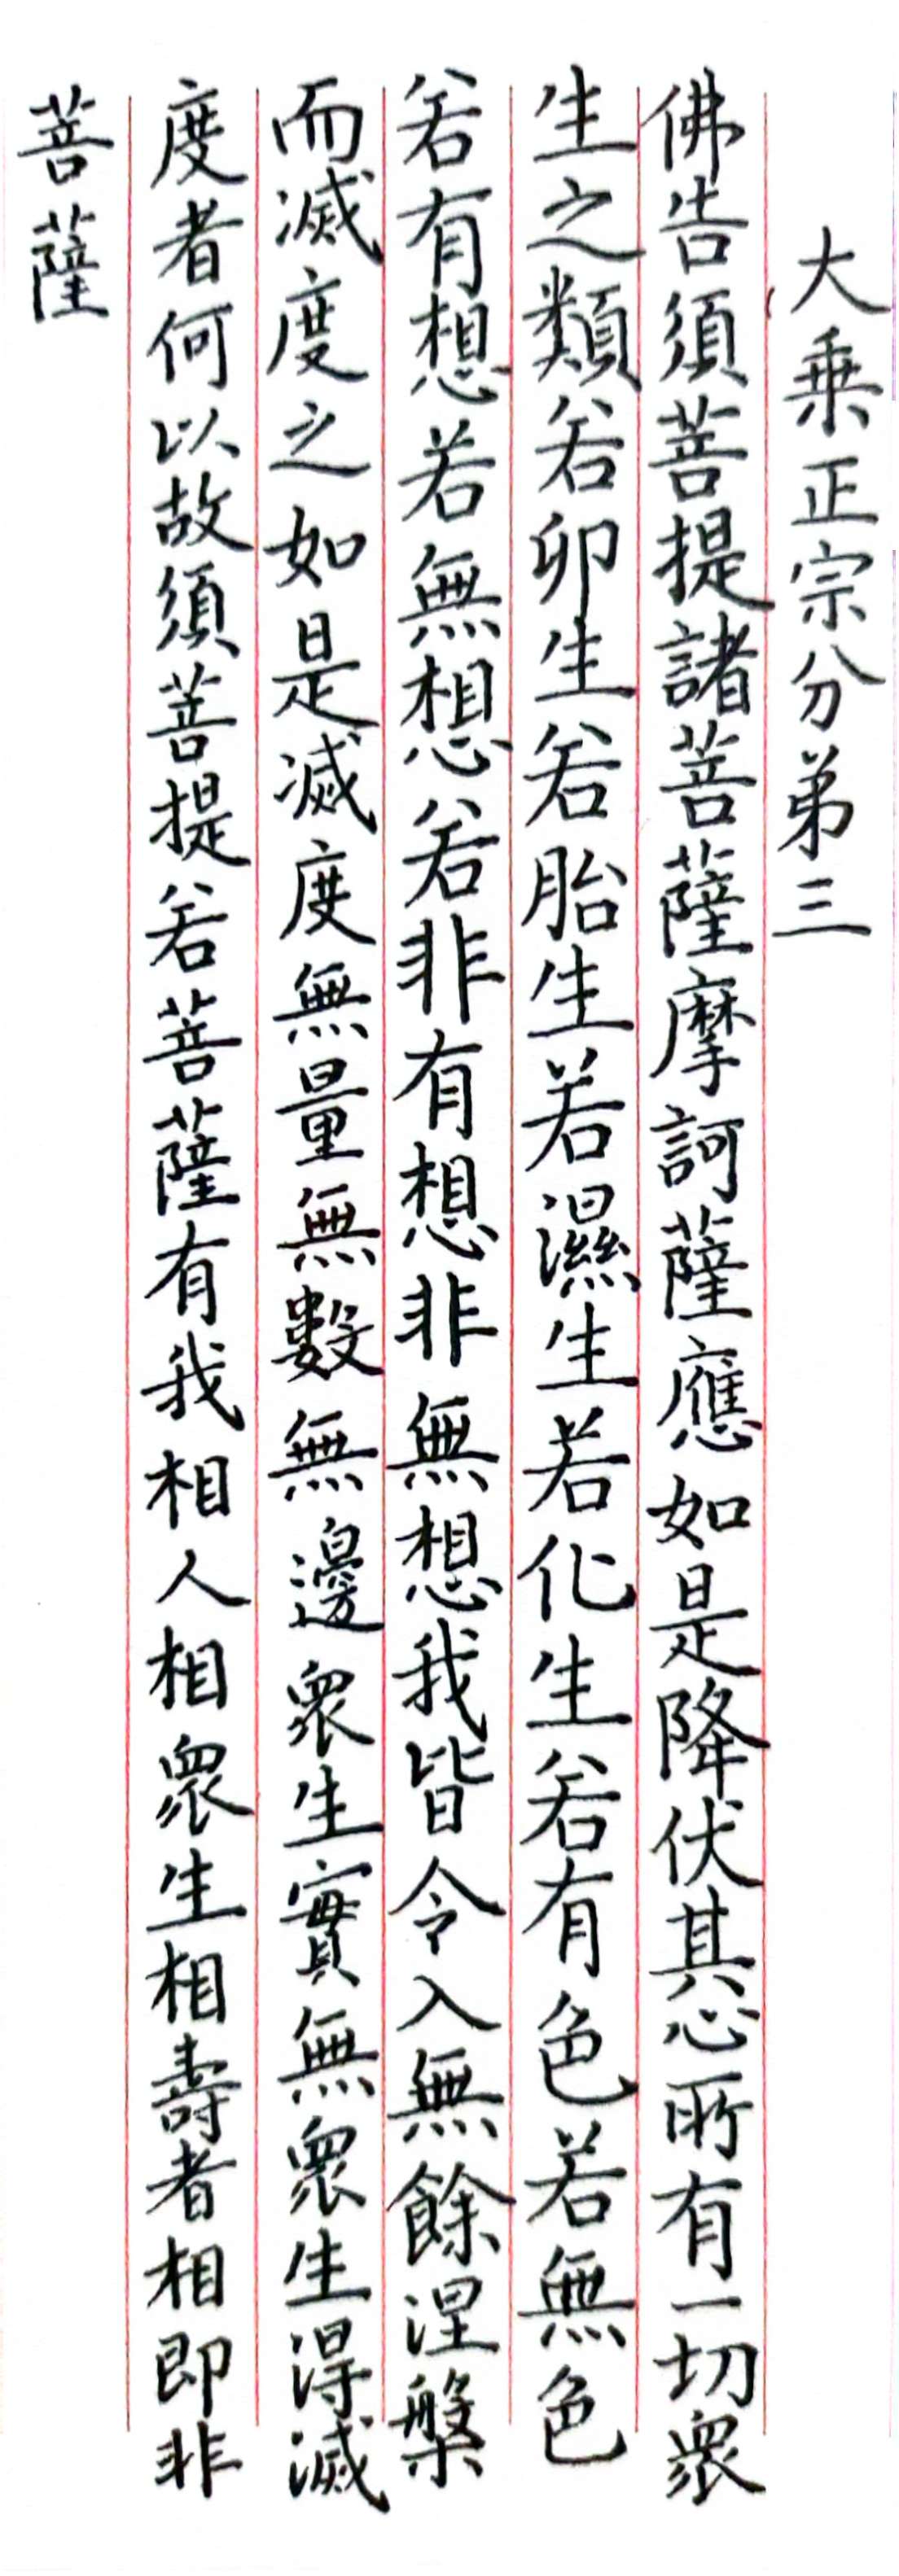 大乗正宗分弟三
佛告須菩提諸菩薩摩訶薩應如是降伏其心所有一切衆
生之類若卵生若胎生若濕生若化生若有色若無色
若有想若無想若非有想非無想我皆令入無餘涅槃
而滅度之如是滅度無量無數無邊衆生實無衆生得滅
度者何以故須菩提若菩薩有我相人相衆生相壽者相即非
菩薩